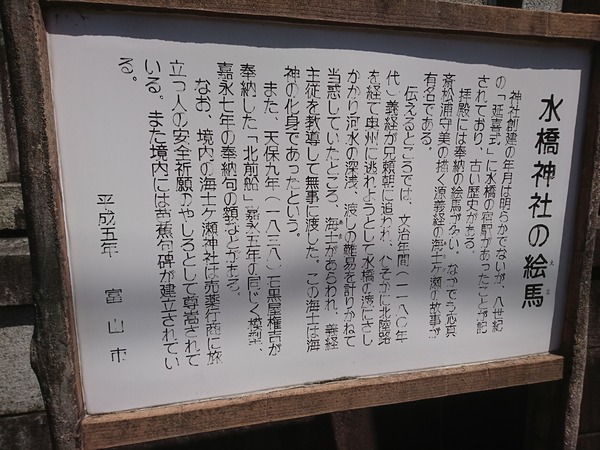 水橋神社の絵馬
えま
神社創建の年月は明らかでないが、八世紀
の「延喜式」に水橋の宿駅があったことが記
されており、古い歴史がある。
拝殿には奉納の絵馬が多い。なかでも
斎松浦守美の描く源義経の海士ケ瀬の故事が
有名である。
伝えるところでは、文治年間(一一八〇年
代)義経が兄頼朝に追われ、ひそかに北陸路
を経て奥州に逃れようとして水橋の渡にさし
かかり河水の深浅、渡しの難易を計りかねて
当惑していたところ、海士があらわれ、義経
主従を教導して無事に渡した。この海士は海
神の化身であったという。
また、天保九年(一八三八)石黒屋権吉が
奉納した「北前船」嘉永五年の同じく模型、
嘉永七年の奉納句の額などがある。
なお、境内の海士ケ瀬神社は売薬行商に旅
立つ人の安全祈願のやしろとして尊崇されて
いる。また境内には芭蕉句碑が建立されてい
る。
平成五年 富山市